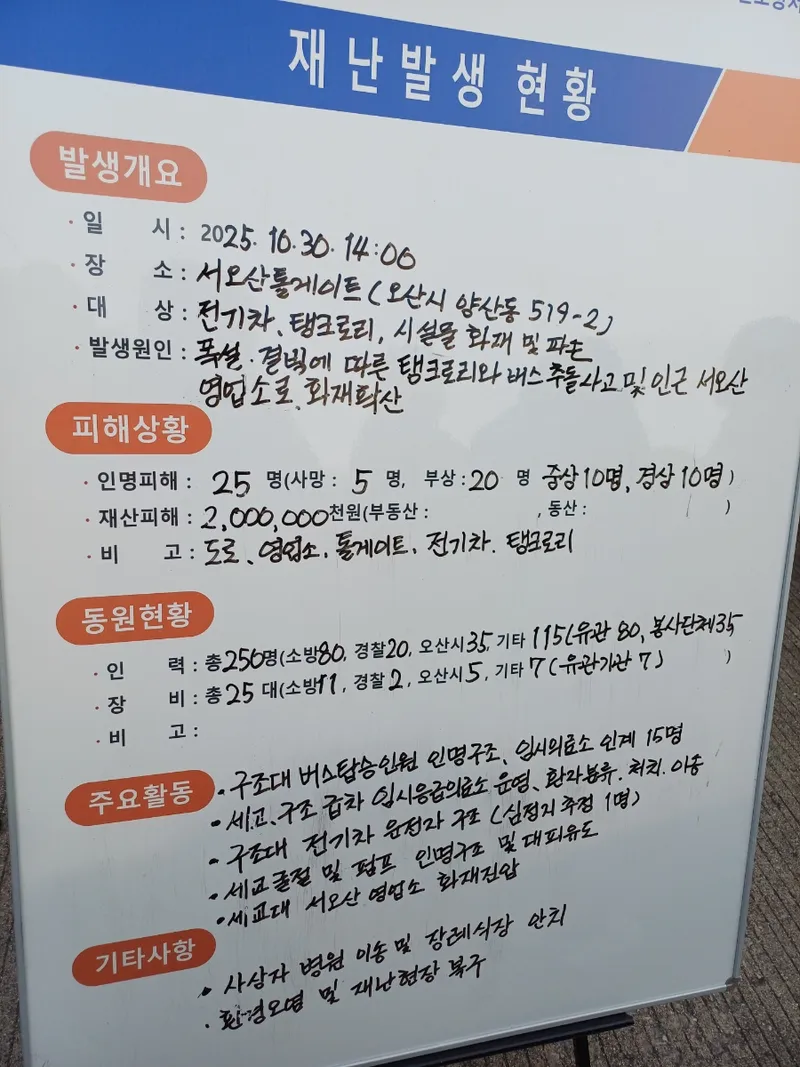 재난발생 현황
발생개요
· 일 시 : 2025. 10. 30. 14:00
· 장 소 : 서오산톨게이트 ( 오산시 양산동 519-2)
· 대 상 : 전기차, 탱크로리, 시설물 화재 및 파손
· 발생원인 : 폭설·결빙에 따른 탱크로리와 버스 추돌사고 및 인근 서오산
영업소로 화재확산
피해상황
· 인명피해 : 25 명(사망 : 5 명, 부상 : 20 명 중상 10명, 경상 10명 )
· 재산피해 : 2,000,000천원(부동산 : , 동산 : )
· 비 고 : 도로, 영업소, 톨게이트, 전기차, 탱크로리
동원현황
· 인 력 : 총250명(소방80, 경찰20, 오산시35, 기타 115(유관 80, 봉사단체35
· 장 비 : 총25 대(소방11, 경찰2, 오산시5, 기타 7 ( 유관기관 7 ) )
· 비 고 :
주요활동
• 구조대 버스탑승인원 인명구조, 임시의료소 인계 15명
• 세교, 구조 급차 임시응급의료소 운영, 환자분류, 처치, 이송
• 구조대 전기차 운전자 구조 (심정지 추정 1명)
• 세교굴절 및 펌프 인명구조 및 대피유도
• 세교대 서오산 영업소 화재진압
기타사항
• 사상자 병원 이송 및 장례식장 안치
• 환경오염 및 재난현장 복구